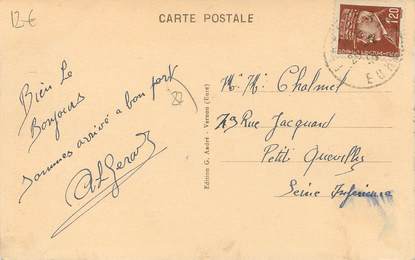 12€
CARTE POSTALE
1,20
Bien le
Bonjour
sommes arrivé a bon port
Edition G. André - Vernon (Eure)
Mr Mme Chalmel
73 Rue Jacquard
Petit Quevilly
Seine Inférieure